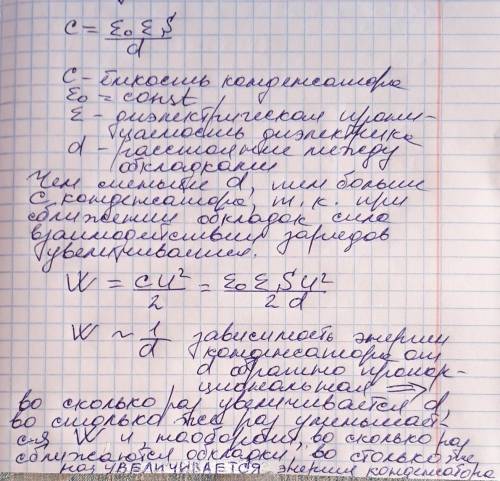 C = ε₀ ε S / d
C – ёмкость конденсатора
ε₀ = const
ε – диэлектрическая прони-
цаемость диэлектрика
d – расстояние между
обкладками
Чем меньше d, тем больше
C конденсатора, т. к. при
сближении обкладок сила
взаимодействия зарядов
увеличивается.
W = CU² / 2 = ε₀ ε S U² / 2d
W ~ 1/d зависимость энергии
конденсатора от
d обратно пропор-
циональная ⇒
во сколько раз увеличивается d,
во столько же раз уменьшает-
ся W и, наоборот, во сколько раз
сближаются обкладки, во столько же
раз УВЕЛИЧИВАЕТСЯ энергия конденсатора